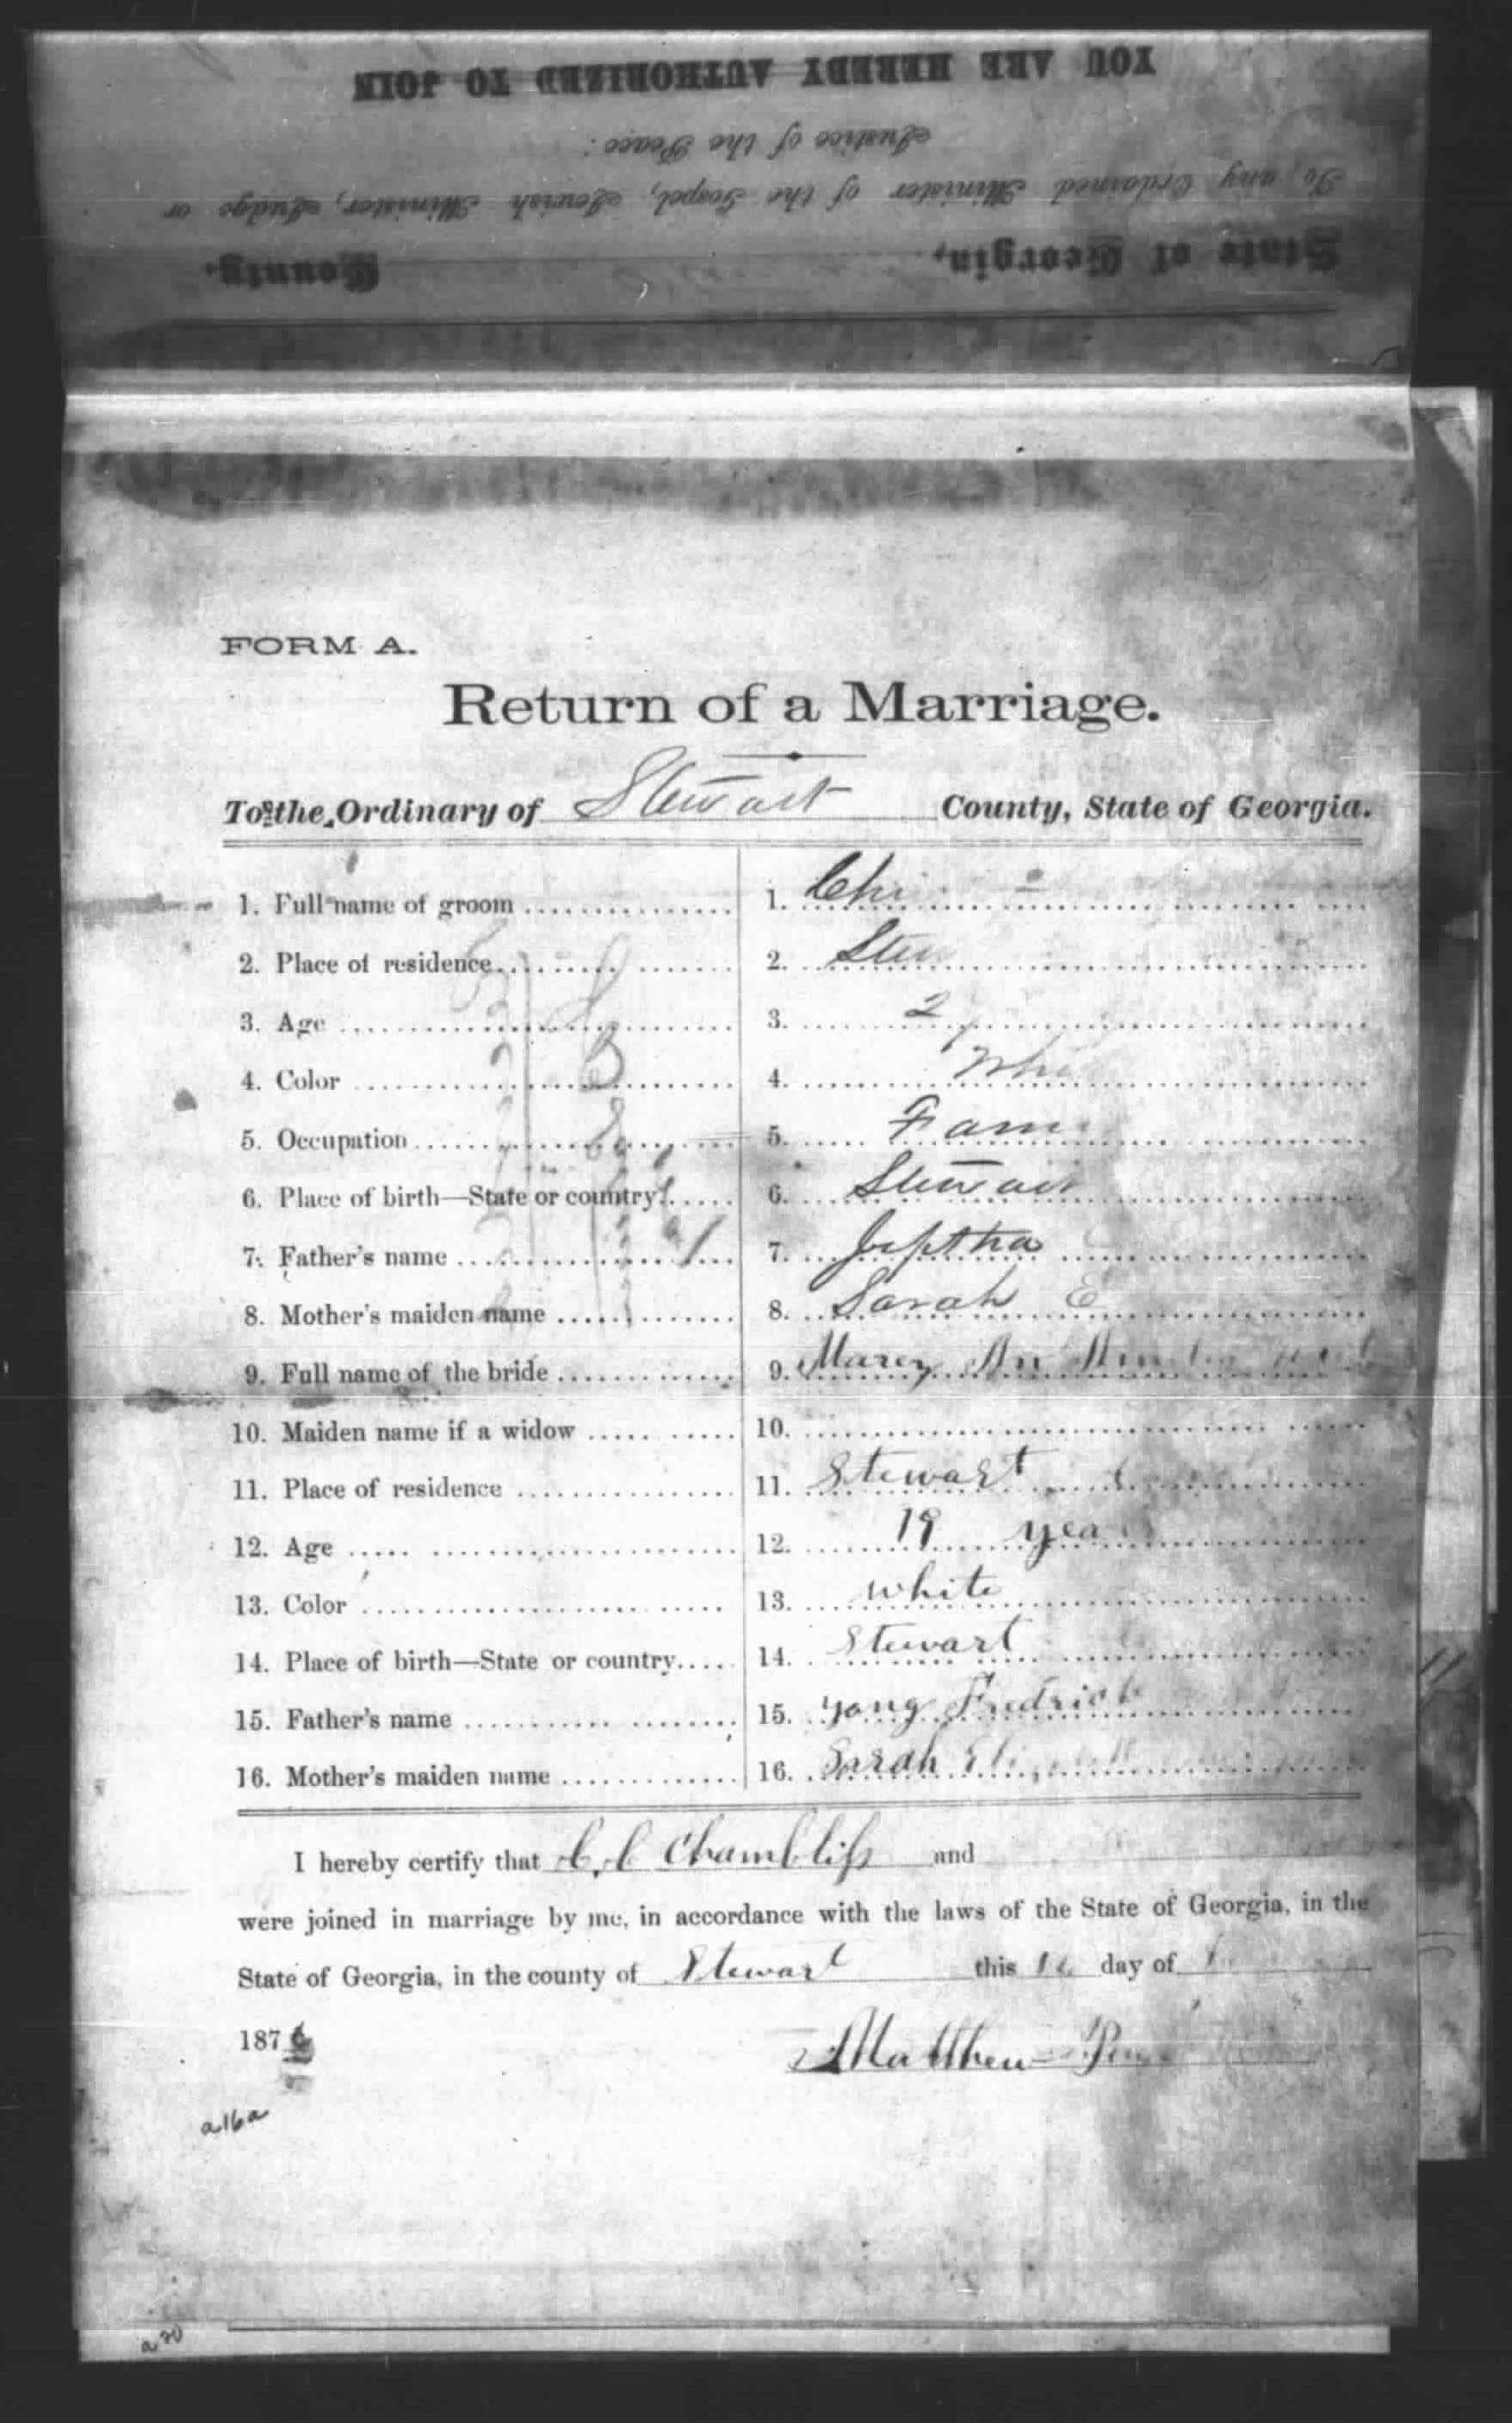 YOU ARE HEREBY AUTHORIZED TO JOIN
Justice of the Peace:
To any Ordained Minister of the Gospel, Jewish Minister, Judge or
State of Georgia, County.
FORM A.
Return of a Marriage.
To the Ordinary of Stewart County, State of Georgia.
1. Full name of groom 1. Chi
2. Place of residence 2. Stew
3. Age 3. 2
4. Color 4. Whi
5. Occupation 5. Farm
6. Place of birth—State or country 6. Stewart
7. Father's name 7. Jeptha
8. Mother's maiden name 8. Sarah E
9. Full name of the bride 9. Marey An
10. Maiden name if a widow 10.
11. Place of residence 11. Stewart
12. Age 12. 19 yea
13. Color 13. white
14. Place of birth—State or country 14. Stewart
15. Father's name 15. yong Fredrick
16. Mother's maiden name 16. Sarah
I hereby certify that C. C Chambliss and
were joined in marriage by me, in accordance with the laws of the State of Georgia, in the
State of Georgia, in the county of Stewart this day of
1876
Matthew
a16a
a20